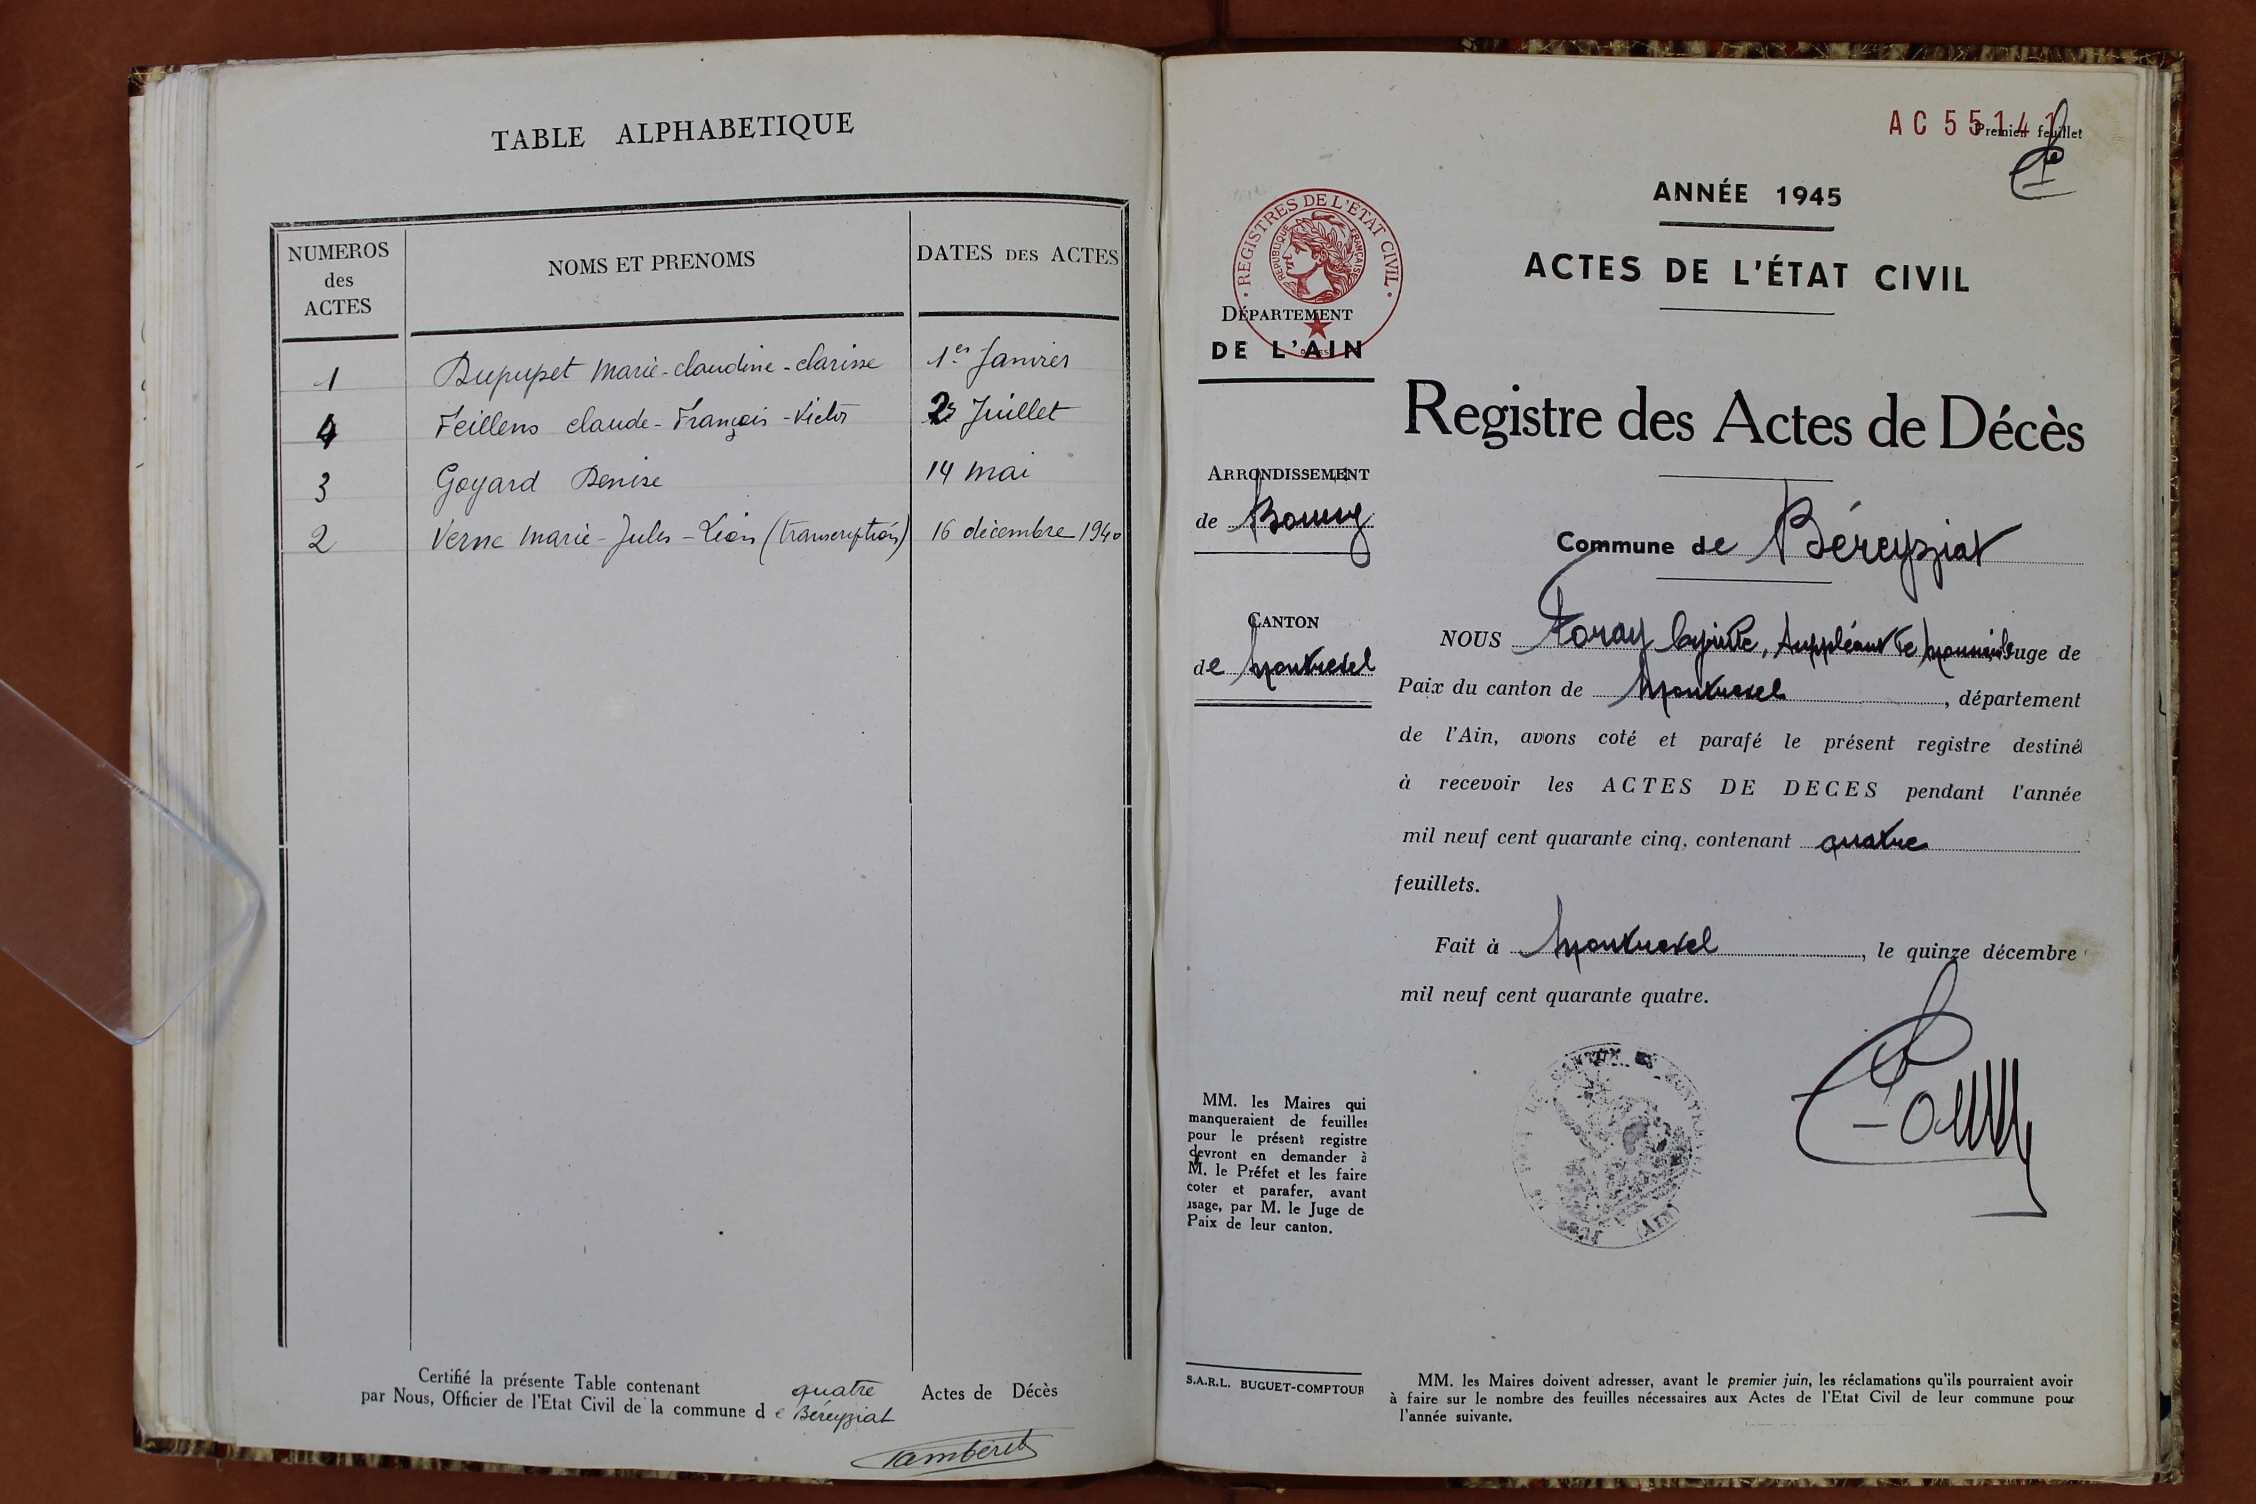 TABLE ALPHABETIQUE
NUMEROS
des
ACTES
NOMS ET PRENOMS
DATES DES ACTES
1 Dupupet Marie-Claudine-Clarisse 1er Janvier
4 Feillens Claude-François-Victor Juillet
3 Goyard Denise 14 Mai
2 Verne Marie-Jules-Léon (transcription) 16 décembre 1940
Certifié la présente Table contenant quatre Actes de Décès
par Nous, Officier de l'Etat Civil de la commune de Béreyziat
Tamberet
AC 55141
Premier feuillet
ANNÉE 1945
ACTES DE L'ÉTAT CIVIL
REGISTRES DE L'ÉTAT CIVIL
REPUBLIQUE FRANÇAISE
DÉPARTEMENT
DE L'AIN
Registre des Actes de Décès
ARRONDISSEMENT
de Bourg
Commune de Béreyziat
CANTON
de Montrevel
NOUS Foray Suppléant de Monsieur Juge de
Paix du canton de Montrevel, département
de l'Ain, avons coté et parafé le présent registre destiné
à recevoir les ACTES DE DECES pendant l'année
mil neuf cent quarante cinq, contenant quatre
feuillets.
Fait à Montrevel, le quinze décembre
mil neuf cent quarante quatre.
MM. les Maires qui
manqueraient de feuilles
pour le présent registre
devront en demander à
M. le Préfet et les faire
coter et parafer, avant
usage, par M. le Juge de
Paix de leur canton.
S.A.R.L. BUGUET-COMPTOUR
MM. les Maires doivent adresser, avant le premier juin, les réclamations qu'ils pourraient avoir
à faire sur le nombre des feuilles nécessaires aux Actes de l'Etat Civil de leur commune pour
l'année suivante.